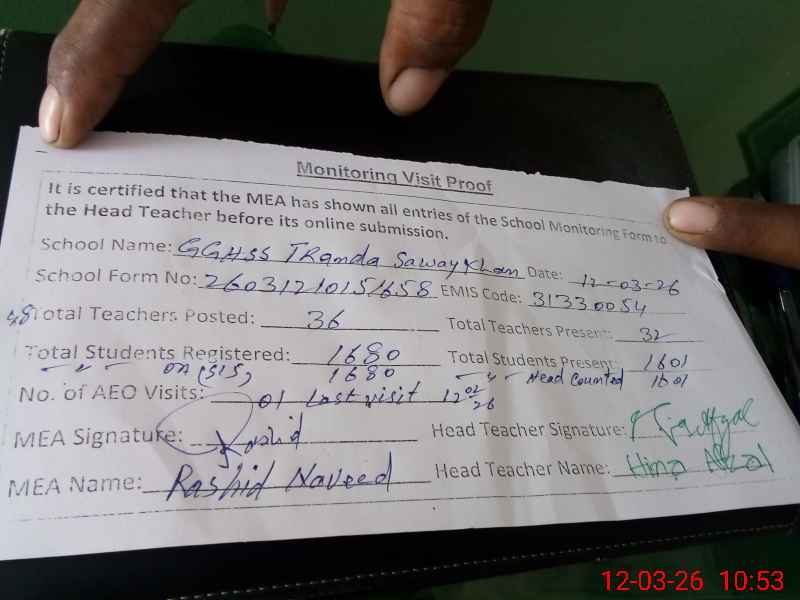 Monitoring Visit Proof
It is certified that the MEA has shown all entries of the School Monitoring Form to
the Head Teacher before its online submission.
School Name: GGHSS TRanda Saway Khan Date: 12-03-26
School Form No: 26031210151658 EMIS Code: 31330054
Total Teachers Posted: 36 Total Teachers Present: 32
Total Students Registered: 1680 Total Students Present: 1601
on (SIS) 1680 Head Counted 1601
No. of AEO Visits: 01 Last visit 12 02/26
MEA Signature: Rashid Head Teacher Signature:
MEA Name: Rashid Naveed Head Teacher Name: Hina
12-03-26 10:53